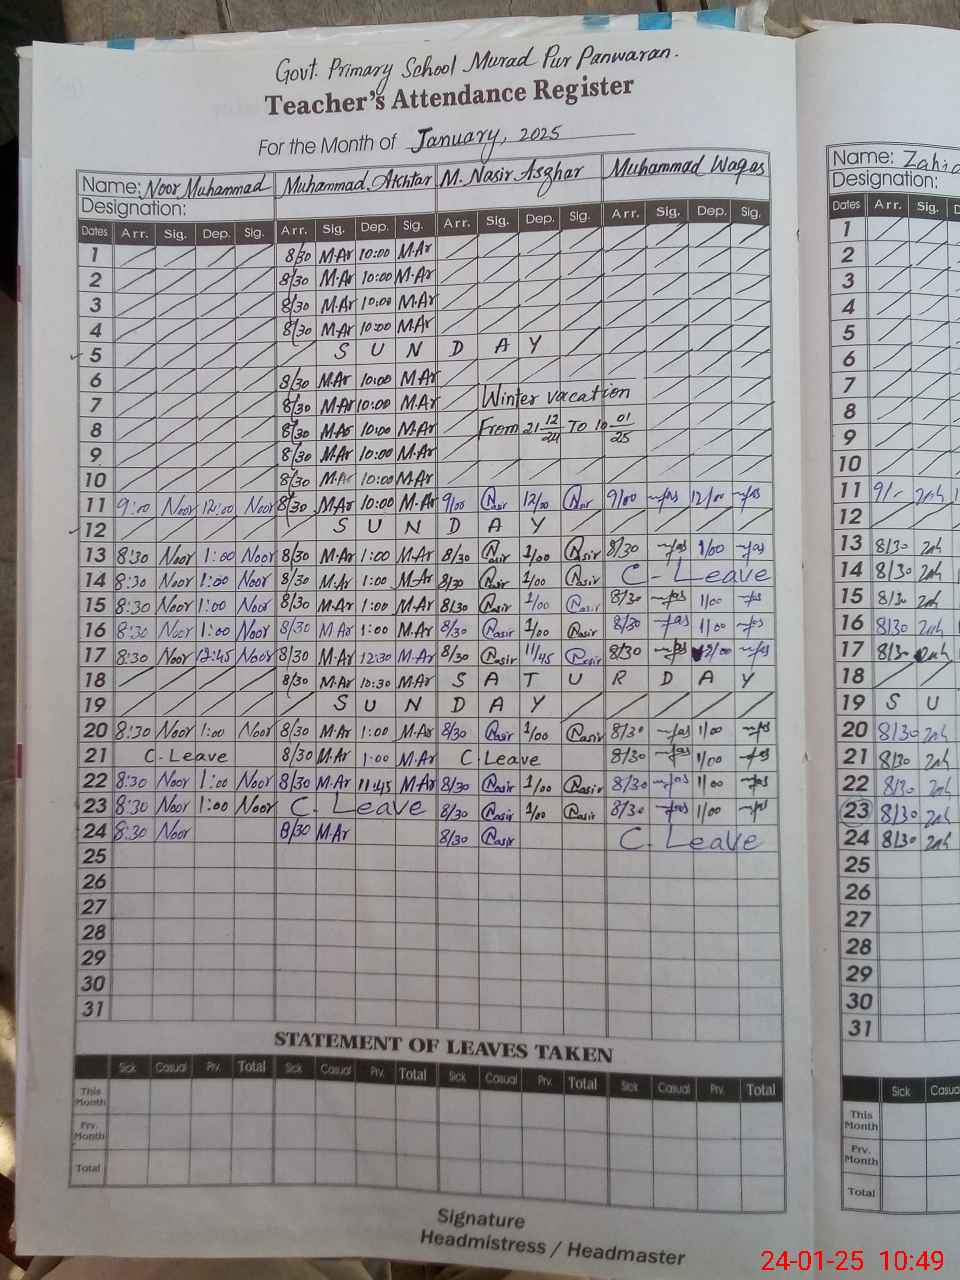 Govt. Primary School Murad Pur Panwaran.
Teacher's Attendance Register
For the Month of January, 2025
Name: Noor Muhammad Muhammad Akhtar M. Nasir Asghar Muhammad Waqas Name:
Designation: Designation:
Dates Arr. Sig. Dep. Sig. Arr. Sig. Dep. Sig. Arr. Sig. Dep. Sig. Arr. Sig. Dep. Sig. Dates Arr. Sig.
1 8/30 M.Ar 10:00 M.Ar 1
2 8/30 M.Ar 10:00 M.Ar 2
3 8/30 M.Ar 10:00 M.Ar 3
4 8/30 M.Ar 10:00 M.Ar 4
5 S U N D A Y 5
6 8/30 M.Ar 10:00 M.Ar 6
7 8/30 M.Ar 10:00 M.Ar Winter vacation 7
8 8/30 M.Ar 10:00 M.Ar From 21 12/24 To 10 01/25 8
9 8/30 M.Ar 10:00 M.Ar 9
10 8/30 M.Ar 10:00 M.Ar 10
11 9:00 Noor 12:00 Noor 8/30 M.Ar 10:00 M.Ar 9/00 Nasir 12/00 Nasir 9/00 12/00 11
12 S U N D A Y 12
13 8:30 Noor 1:00 Noor 8/30 M.Ar 1:00 M.Ar 8/30 Nasir 1/00 Nasir 8/30 1/00 13 8/30
14 8:30 Noor 1:00 Noor 8/30 M.Ar 1:00 M.Ar 8/30 Nasir 1/00 Nasir C. Leave 14 8/30
15 8:30 Noor 1:00 Noor 8/30 M.Ar 1:00 M.Ar 8/30 Nasir 1/00 Nasir 8/30 1/00 15 8/30
16 8:30 Noor 1:00 Noor 8/30 M.Ar 1:00 M.Ar 8/30 Nasir 1/00 Nasir 8/30 1/00 16 8/30
17 8:30 Noor 12:45 Noor 8/30 M.Ar 12:30 M.Ar 8/30 Nasir 11/45 Nasir 8/30 17 8/30
18 8/30 M.Ar 10:30 M.Ar S A T U R D A Y 18
19 S U N D A Y 19 S U
20 8:30 Noor 1:00 Noor 8/30 M.Ar 1:00 M.Ar 8/30 Nasir 1/00 Nasir 8/30 1/00 20 8/30
21 C. Leave 8/30 M.Ar 1:00 M.Ar C. Leave 8/30 1/00 21 8/30
22 8:30 Noor 1:00 Noor 8/30 M.Ar 11:45 M.Ar 8/30 Nasir 1/00 Nasir 8/30 1/00 22 8/30
23 8:30 Noor 1:00 Noor C. Leave 8/30 Nasir 1/00 Nasir 8/30 1/00 23 8/30
24 8:30 Noor 8/30 M.Ar 8/30 Nasir C. Leave 24 8/30
25 25
26 26
27 27
28 28
29 29
30 30
31 31
STATEMENT OF LEAVES TAKEN
Sick Casual Prv. Total Sick Casual Prv. Total Sick Casual Prv. Total Sick Casual Prv. Total Sick
This Month This Month
Prv. Month Prv. Month
Total Total
Signature
Headmistress / Headmaster
24-01-25 10:49